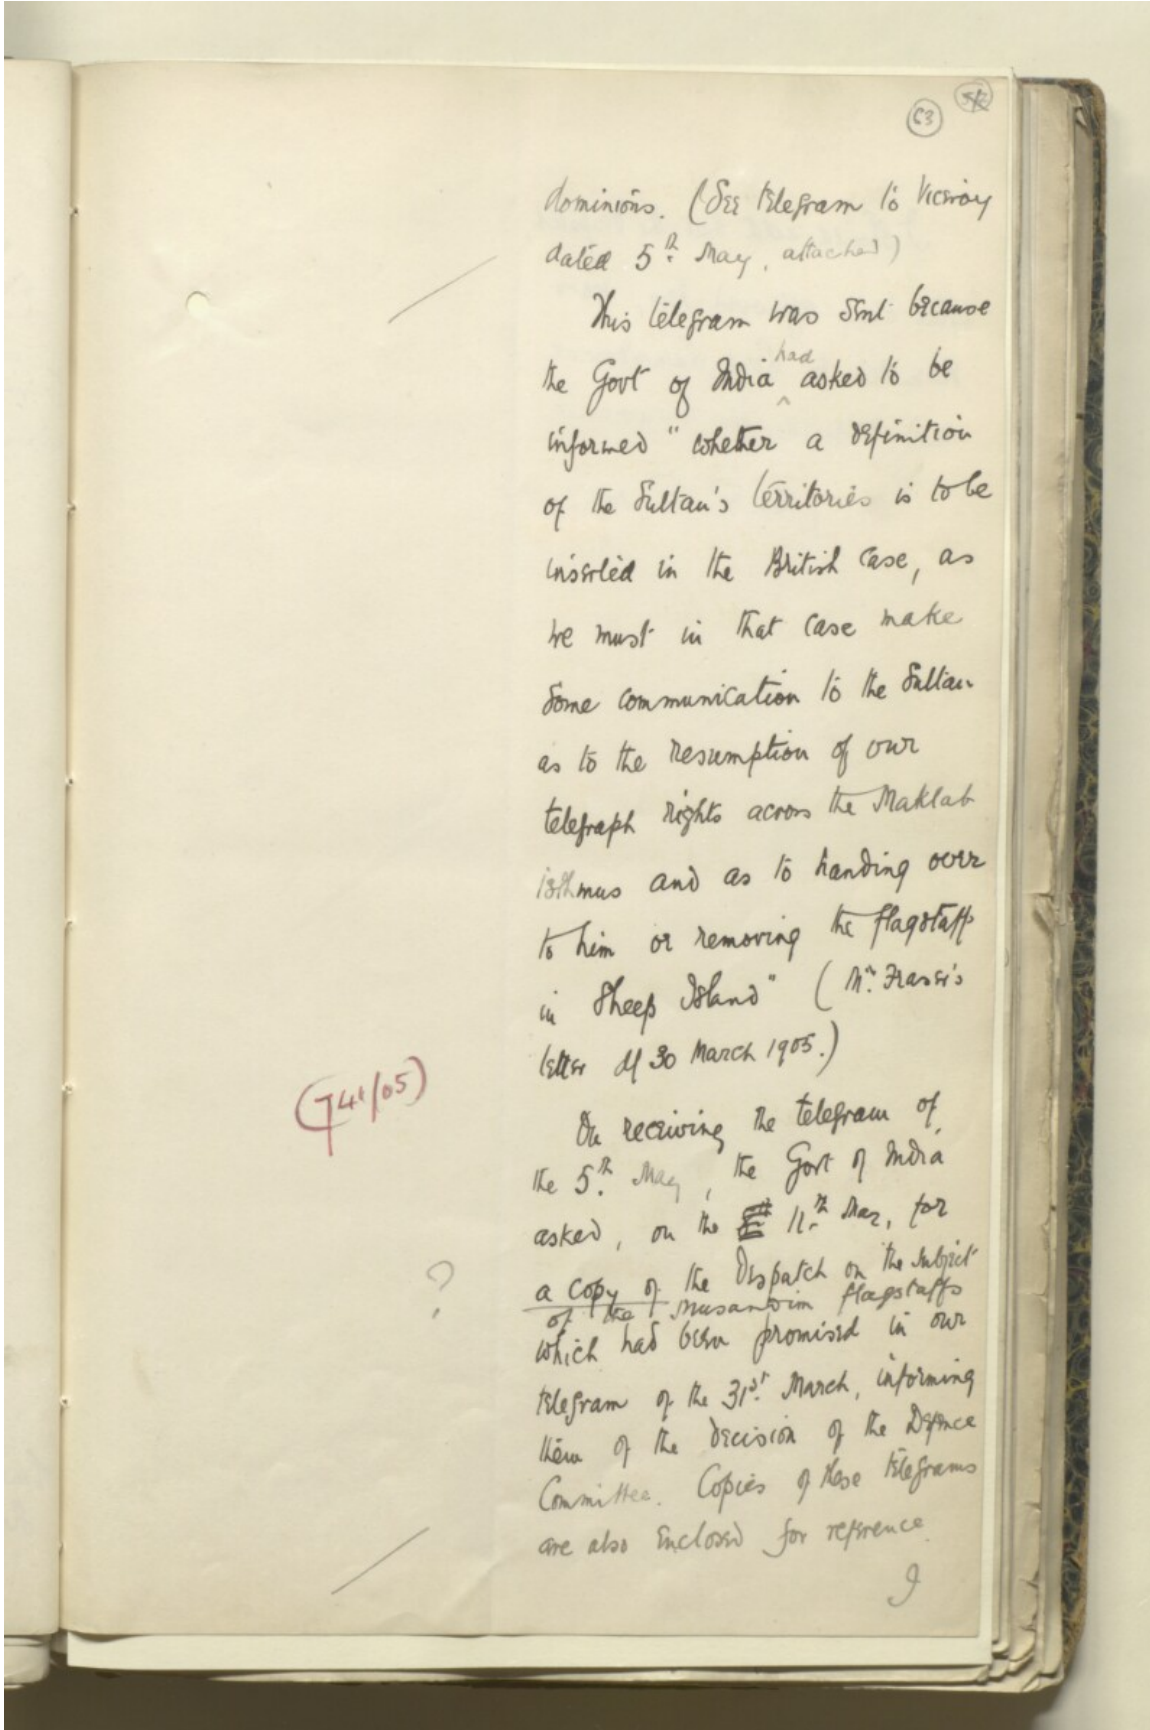 63
dominions. (See telegram to Viceroy
dated 5th May, attached)
This telegram was sent because
the Govt of India had asked to be
informed "whether a definition
of the Sultan's territories is to be
inserted in the British case, as
we must in that case make
some communication to the Sultan
as to the resumption of our
telegraph rights across the Maklab
isthmus and as to handing over
to him or removing the flagstaff
in Sheep Island" (Mr. Fraser's
letter of 30 March 1905.)
(741/05)
On receiving the telegram of
the 5th May, the Govt of India
asked, on the 11th May, for
?
a copy of the Dispatch on the subject
of the Musandim flagstaffs
which had been promised in our
telegram of the 31st March, informing
them of the decision of the Defence
Committee. Copies of these telegrams
are also enclosed for reference.
I